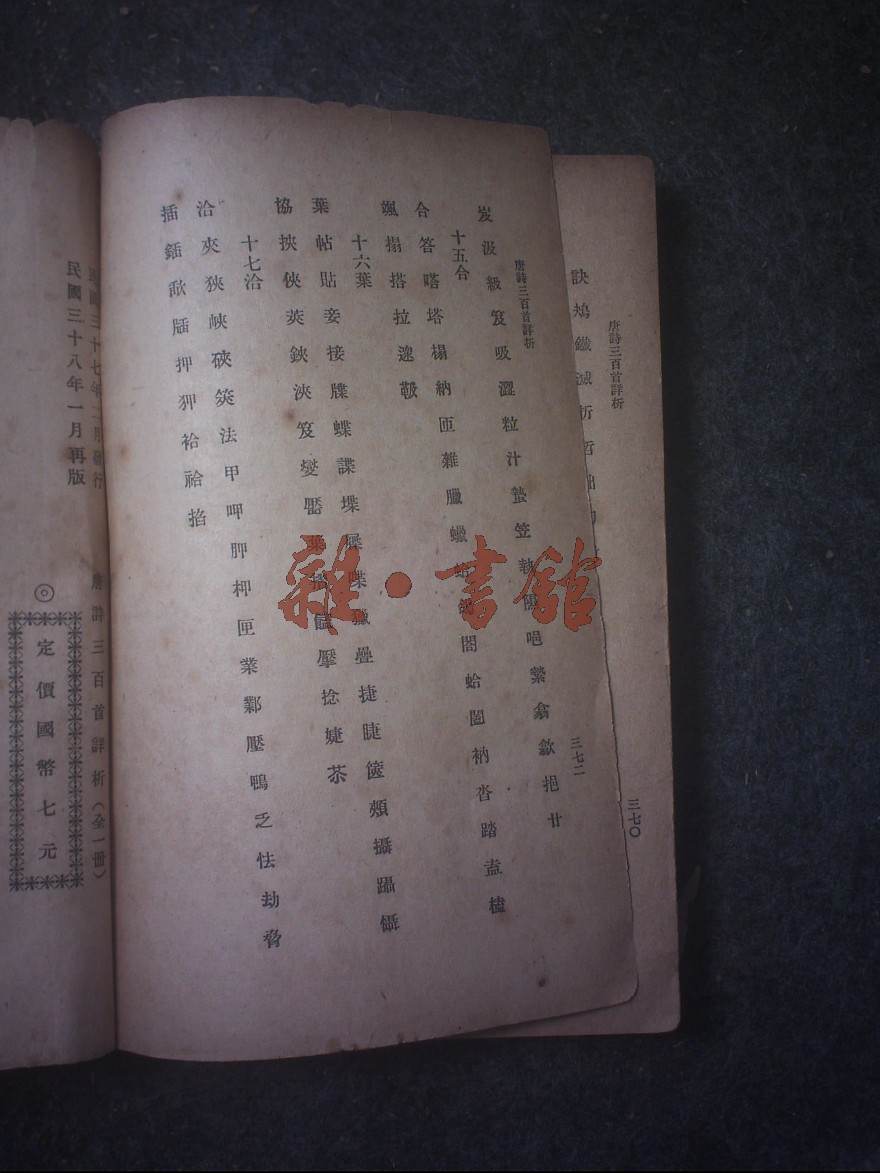 唐詩三百首詳析
三七〇
訣鴆鐵滅折哲
唐詩三百首詳析
三七二
岌汲級笈吸澀粒汁蟄笠執隰悒縶翕歙挹廿
十五合
合答嗒塔榻納匝雜臘蠟閤蛤闔衲沓踏盍榼
颯搨搭拉
十六葉
葉帖貼妾接牒蝶諜堞喋疊捷睫篋頰攝躡懾
協挾俠莢鋏浹笈燮靨捻婕
十七洽
洽夾狹峽硤筴法甲呷胛柙匣業鄴壓鴨乏怯劫脅
插鍤歃押狎袷掐
民國三十七年二月發行
民國三十八年一月再版
唐詩三百首詳析（全一冊）
◎定價國幣七元
雜·書館